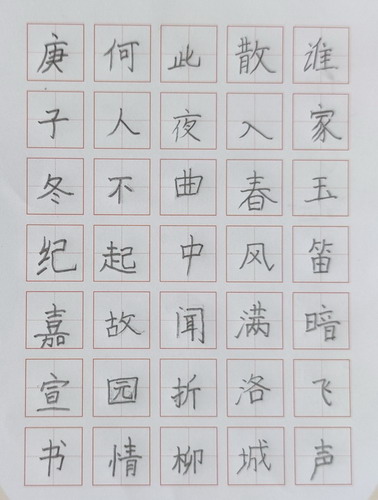 谁家玉笛暗飞声
散入春风满洛城
此夜曲中闻折柳
何人不起故园情
庚子冬纪嘉宣书